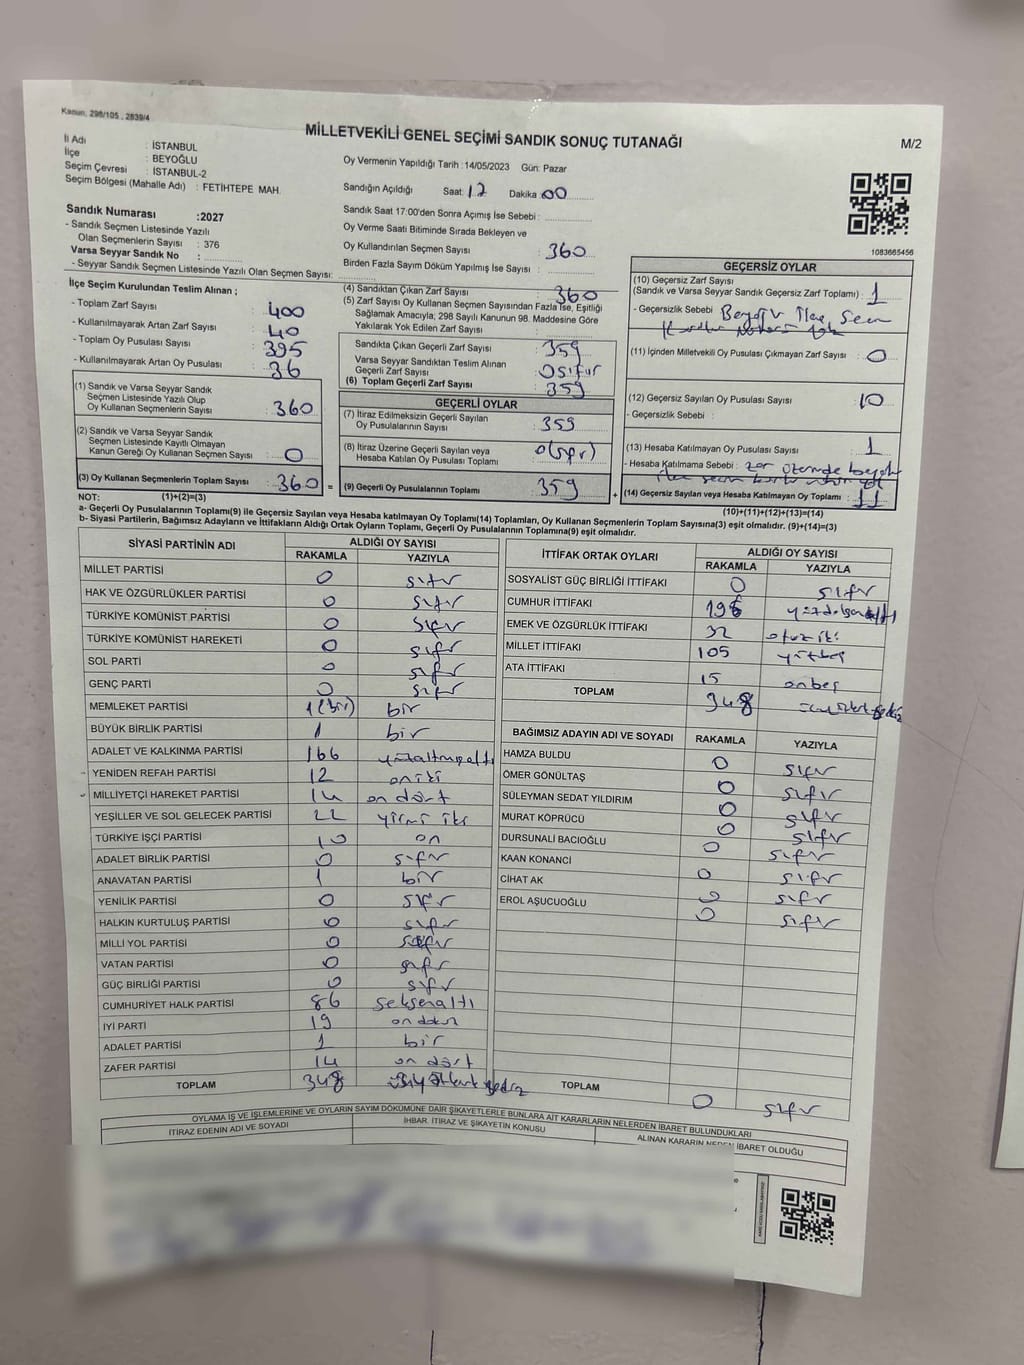 Kanun, 298/105 , 2839/4
MİLLETVEKİLİ GENEL SEÇİMİ SANDIK SONUÇ TUTANAĞI
M/2
İl Adı : İSTANBUL
İlçe : BEYOĞLU
Seçim Çevresi : İSTANBUL-2
Seçim Bölgesi (Mahalle Adı) : FETİHTEPE MAH.
Sandık Numarası :2027
- Sandık Seçmen Listesinde Yazılı
Olan Seçmenlerin Sayısı : 376
Varsa Seyyar Sandık No :
- Seyyar Sandık Seçmen Listesinde Yazılı Olan Seçmen Sayısı:
Oy Vermenin Yapıldığı Tarih :14/05/2023 Gün: Pazar
Sandığın Açıldığı Saat: 12 Dakika :00
Sandık Saat 17:00'den Sonra Açımış İse Sebebi :
Oy Verme Saati Bitiminde Sırada Bekleyen ve
Oy Kullandırılan Seçmen Sayısı : 360
Birden Fazla Sayım Döküm Yapılmış İse Sayısı :
1083665456
İlçe Seçim Kurulundan Teslim Alınan ;
- Toplam Zarf Sayısı : 400
- Kullanılmayarak Artan Zarf Sayısı : 40
- Toplam Oy Pusulası Sayısı : 395
- Kullanılmayarak Artan Oy Pusulası : 36
(1) Sandık ve Varsa Seyyar Sandık
Seçmen Listesinde Yazılı Olup
Oy Kullanan Seçmenlerin Sayısı : 360
(2) Sandık ve Varsa Seyyar Sandık
Seçmen Listesinde Kayıtlı Olmayan
Kanun Gereği Oy Kullanan Seçmen Sayısı : 0
(3) Oy Kullanan Seçmenlerin Toplam Sayısı : 360 =
(4) Sandıktan Çıkan Zarf Sayısı : 360
(5) Zarf Sayısı Oy Kullanan Seçmen Sayısından Fazla İse, Eşitliği
Sağlamak Amacıyla, 298 Sayılı Kanunun 98. Maddesine Göre
Yakılarak Yok Edilen Zarf Sayısı :
Sandıkta Çıkan Geçerli Zarf Sayısı : 359
Varsa Seyyar Sandıktan Teslim Alınan
Geçerli Zarf Sayısı : 0 sıfır
(6) Toplam Geçerli Zarf Sayısı : 359
GEÇERLİ OYLAR
(7) İtiraz Edilmeksizin Geçerli Sayılan
Oy Pusulalarının Sayısı : 359
(8) İtiraz Üzerine Geçerli Sayılan veya
Hesaba Katılan Oy Pusulası Toplamı : 0(sıfır)
(9) Geçerli Oy Pusulalarının Toplamı : 359 +
GEÇERSİZ OYLAR
(10) Geçersiz Zarf Sayısı
(Sandık ve Varsa Seyyar Sandık Geçersiz Zarf Toplamı) : 1
- Geçersizlik Sebebi : Beyoğlu İlçe Seçm
(11) İçinden Milletvekili Oy Pusulası Çıkmayan Zarf Sayısı : 0
(12) Geçersiz Sayılan Oy Pusulası Sayısı : 10
- Geçersizlik Sebebi :
(13) Hesaba Katılmayan Oy Pusulası Sayısı : 1
- Hesaba Katılmama Sebebi : zarf üzerinde beyoğlu
(14) Geçersiz Sayılan veya Hesaba Katılmayan Oy Toplamı : 11
NOT: (1)+(2)=(3)
(10)+(11)+(12)+(13)=(14)
a- Geçerli Oy Pusulalarının Toplamı(9) ile Geçersiz Sayılan veya Hesaba katılmayan Oy Toplamı(14) Toplamları, Oy Kullanan Seçmenlerin Toplam Sayısına(3) eşit olmalıdır. (9)+(14)=(3)
b- Siyasi Partilerin, Bağımsız Adayların ve İttifakların Aldığı Ortak Oyların Toplamı, Geçerli Oy Pusulalarının Toplamına(9) eşit olmalıdır.
SİYASİ PARTİNİN ADI ALDIĞI OY SAYISI
RAKAMLA YAZIYLA
MİLLET PARTİSİ 0 sıfır
HAK VE ÖZGÜRLÜKLER PARTİSİ 0 sıfır
TÜRKİYE KOMÜNİST PARTİSİ 0 sıfır
TÜRKİYE KOMÜNİST HAREKETİ 0 sıfır
SOL PARTİ 0 sıfır
GENÇ PARTİ 0 sıfır
MEMLEKET PARTİSİ 1(bir) bir
BÜYÜK BİRLİK PARTİSİ 1 bir
ADALET VE KALKINMA PARTİSİ 166 yüzaltmışaltı
YENİDEN REFAH PARTİSİ 12 oniki
MİLLİYETÇİ HAREKET PARTİSİ 14 on dört
YEŞİLLER VE SOL GELECEK PARTİSİ 22 yirmi iki
TÜRKİYE İŞÇİ PARTİSİ 10 on
ADALET BİRLİK PARTİSİ 0 sıfır
ANAVATAN PARTİSİ 1 bir
YENİLİK PARTİSİ 0 sıfır
HALKIN KURTULUŞ PARTİSİ 0 sıfır
MİLLİ YOL PARTİSİ 0 sıfır
VATAN PARTİSİ 0 sıfır
GÜÇ BİRLİĞİ PARTİSİ 0 sıfır
CUMHURİYET HALK PARTİSİ 86 seksenaltı
İYİ PARTİ 19 on dokuz
ADALET PARTİSİ 1 bir
ZAFER PARTİSİ 14 on dört
TOPLAM 348
İTTİFAK ORTAK OYLARI ALDIĞI OY SAYISI
RAKAMLA YAZIYLA
SOSYALİST GÜÇ BİRLİĞİ İTTİFAKI 0 sıfır
CUMHUR İTTİFAKI 196
EMEK VE ÖZGÜRLÜK İTTİFAKI 32 otuz iki
MİLLET İTTİFAKI 105 yüzbeş
ATA İTTİFAKI 15 onbeş
TOPLAM 348
BAĞIMSIZ ADAYIN ADI VE SOYADI RAKAMLA YAZIYLA
HAMZA BULDU 0 sıfır
ÖMER GÖNÜLTAŞ 0 sıfır
SÜLEYMAN SEDAT YILDIRIM 0 sıfır
MURAT KÖPRÜCÜ 0 sıfır
DURSUNALİ BACIOĞLU 0 sıfır
KAAN KONANCİ 0 sıfır
CİHAT AK 0 sıfır
EROL AŞUCUOĞLU 0 sıfır
TOPLAM 0 sıfır
OYLAMA İŞ VE İŞLEMLERİNE VE OYLARIN SAYIM DÖKÜMÜNE DAİR ŞİKAYETLERLE BUNLARA AİT KARARLARIN NELERDEN İBARET BULUNDUKLARI
İTİRAZ EDENİN ADI VE SOYADI İHBAR, İTİRAZ VE ŞİKAYETİN KONUSU ALINAN KARARIN NEDEN İBARET OLDUĞU